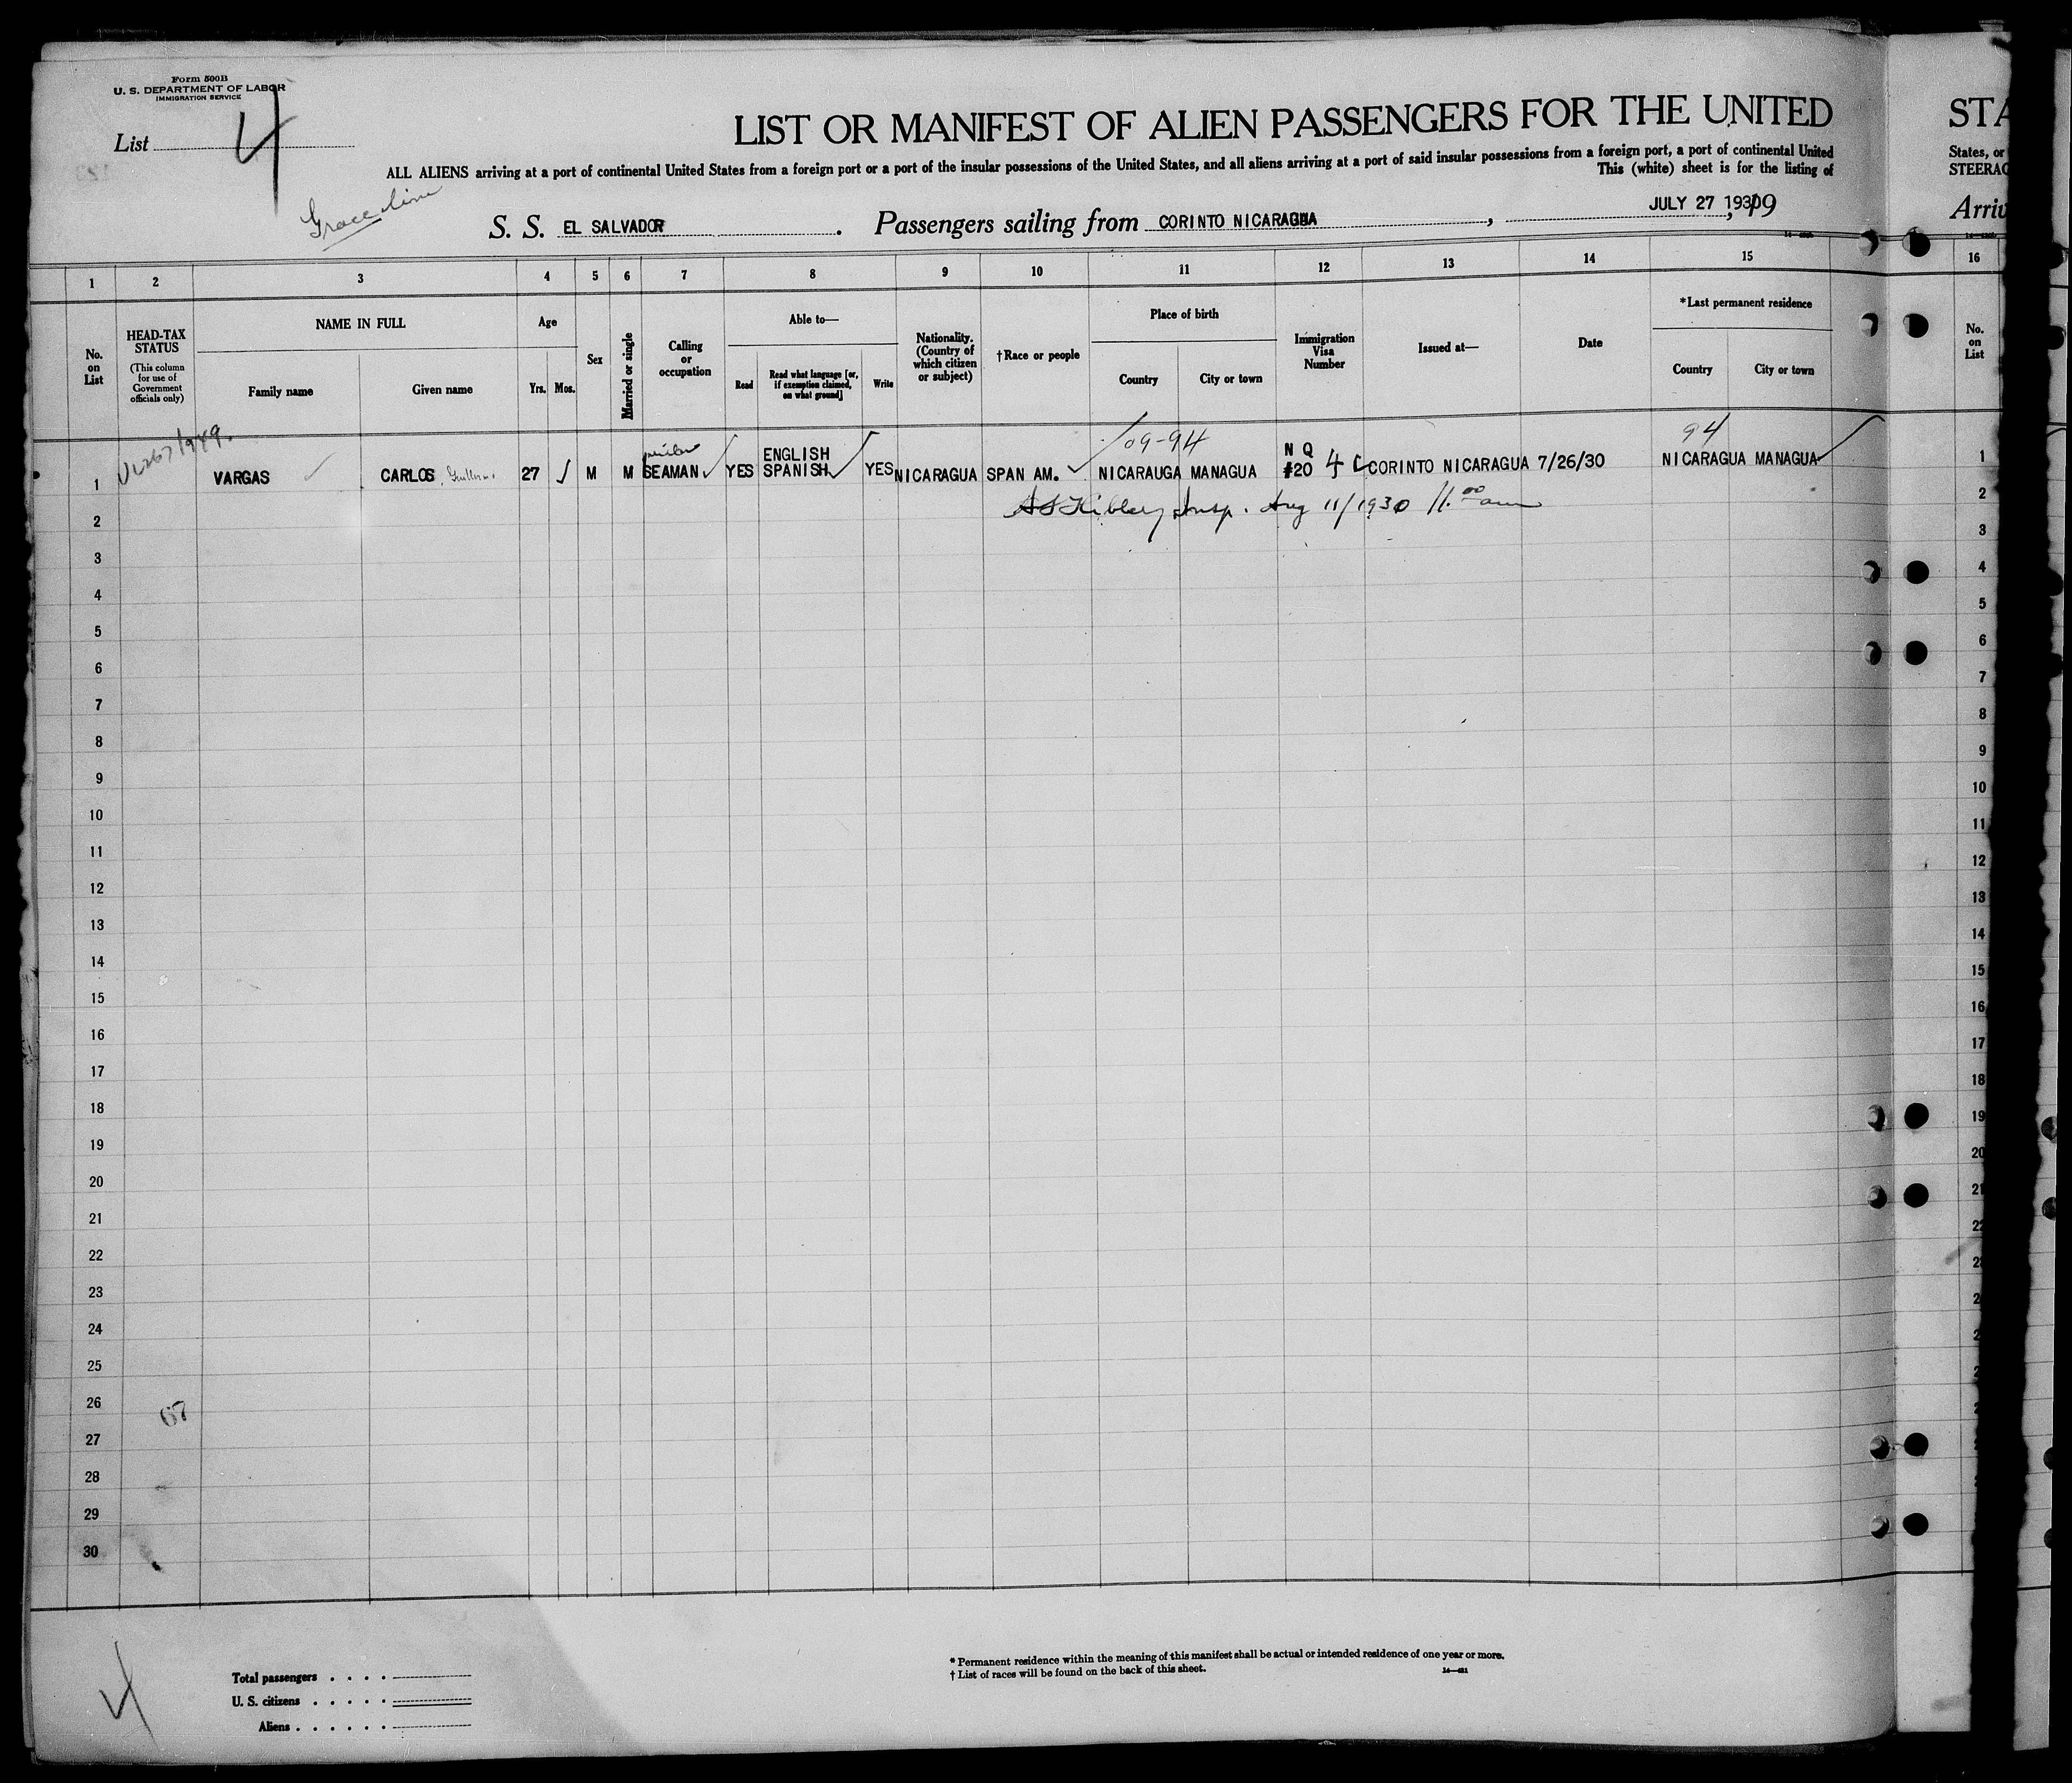 Form 500B
U. S. DEPARTMENT OF LABOR
IMMIGRATION SERVICE
List 4
LIST OR MANIFEST OF ALIEN PASSENGERS FOR THE UNITED
STA
ALL ALIENS arriving at a port of continental United States from a foreign port or a port of the insular possessions of the United States, and all aliens arriving at a port of said insular possessions from a foreign port, a port of continental United
States, or
This (white) sheet is for the listing of
STEERAG
Grace Line
S. S. EL SALVADOR. Passengers sailing from CORINTO NICARAGUA, JULY 27 1930, 19
Arriv
1 2 3 4 5 6 7 8 9 10 11 12 13 14 15 16
No. on List
HEAD-TAX STATUS
(This column for use of Government officials only)
NAME IN FULL
Family name
Given name
Age
Yrs. Mos.
Sex
Married or single
Calling or occupation
Able to—
Read
Read what language [or, if exemption claimed, on what ground]
Write
Nationality. (Country of which citizen or subject)
†Race or people
Place of birth
Country
City or town
Immigration Visa Number
Issued at—
Date
*Last permanent residence
Country
City or town
No. on List
109-94
94
1 VARGAS CARLOS 27 M M SEAMAN YES ENGLISH SPANISH YES NICARAGUA SPAN AM. NICARAUGA MANAGUA N Q #20 4 CORINTO NICARAGUA 7/26/30 NICARAGUA MANAGUA 1
Insp. Aug 11/1930 11.00 am
2 2
3 3
4 4
5 5
6 6
7 7
8 8
9 9
10 10
11 11
12 12
13 13
14 14
15 15
16 16
17 17
18 18
19 19
20 20
21 21
22 22
23
24
25
26
67
27
28
29
30
Total passengers
U. S. citizens
Aliens
* Permanent residence within the meaning of this manifest shall be actual or intended residence of one year or more.
† List of races will be found on the back of this sheet.